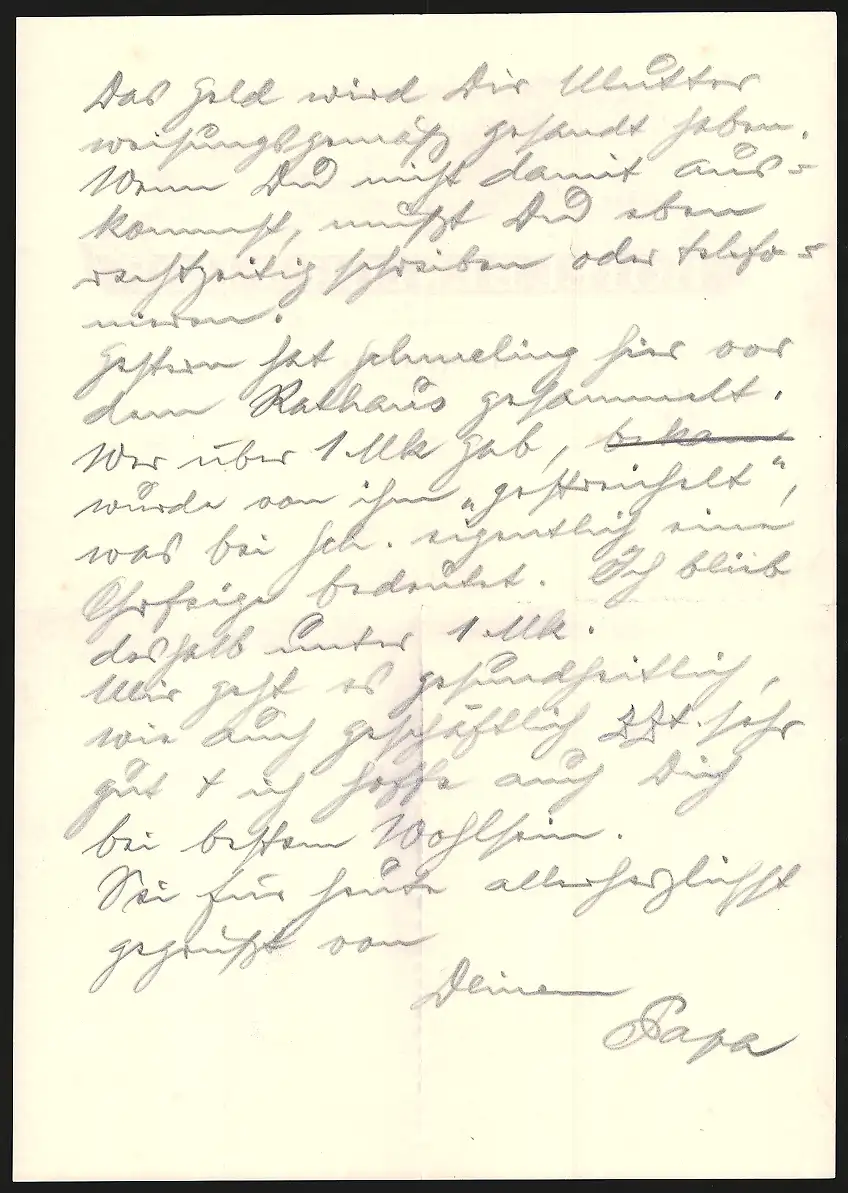 Das Geld wird Dir Mutter
weisungsgemäß gesandt haben.
Wenn Du nicht damit aus=
kommst, mußt Du eben
rechtzeitig schreiben oder telefo=
nieren.
Gestern hat Schmeling hier vor
dem Rathaus gesammelt.
Wer über 1 Mk gab, bekam
wurde von ihm „gestreichelt",
was bei Sch. eigentlich eine
Ohrfeige bedeutet. Ich blieb
deshalb unter 1 Mk.
Mir geht es gesundheitlich,
wie auch geschäftlich z.Zt. sehr
gut + ich hoffe auch Dich
bei bestem Wohlsein.
Sei für heute allerherzlichst
gegrüßt von
Deinem
Papa